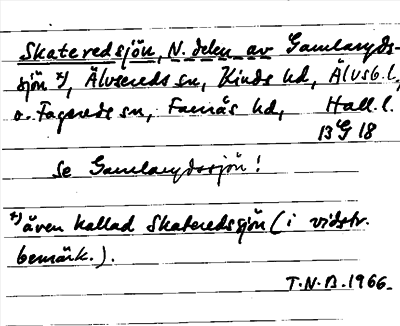 Skateredsjön, N. delen av Gamlaryds-
sjön x), Älvsereds sn, Kinds hd, Älvsb. l.,
o. Fagereds sn, Faurås hd, Hall. l.
13 G 18
Se Gamlarydssjön!
x) även kallad Skateredssjön (i vidstr.
bemärk.).
T.N.B. 1966.